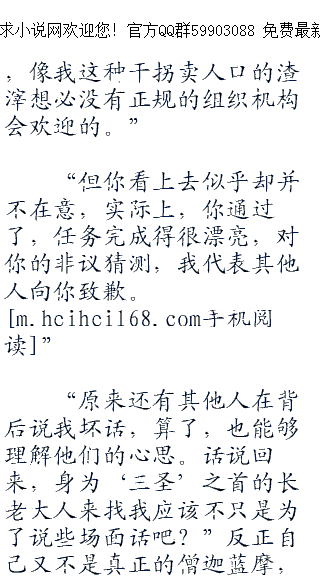 求小说网欢迎您! 官方QQ群59903088 免费最新
，像我这种干拐卖人口的渣
滓想必没有正规的组织机构
会欢迎的。”
“但你看上去似乎却并
不在意，实际上，你通过
了，任务完成得很漂亮，对
你的非议猜测，我代表其他
人向你致歉。
[m.hcihcil68.com手机阅
读]”
“原来还有其他人在背
后说我坏话，算了，也能够
理解他们的心思。话说回
来，身为‘三圣’之首的长
老大人来找我应该不只是为
了说些场面话吧？”反正自
己又不是真正的僧迦蓝摩，